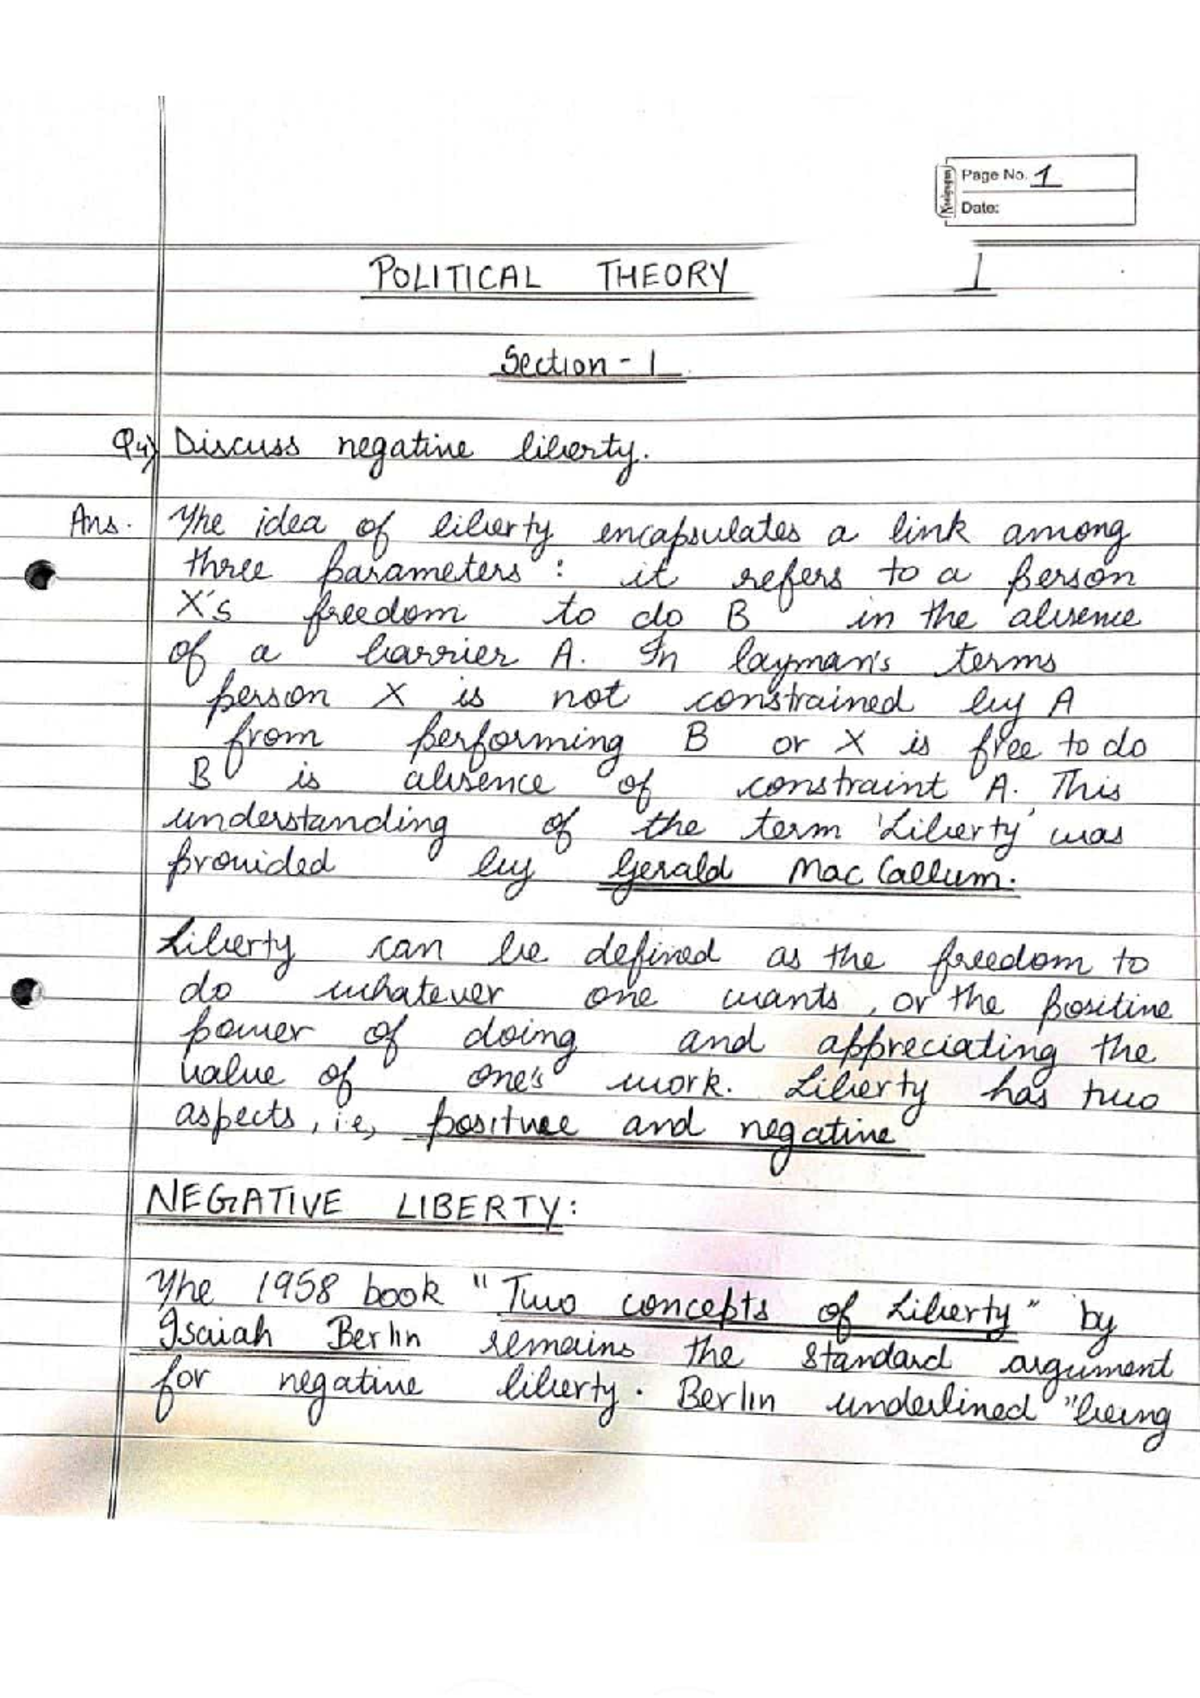 Page No. 1
Date:
POLITICAL THEORY 1
Section - 1
Q4) Discuss negative liberty.
Ans. The idea of liberty encapsulates a link among
three parameters : it refers to a person
X's freedom to do B in the absence
of a barrier A. In layman's terms
person X is not constrained by A
from performing B or X is free to do
B is absence of constraint A. This
understanding of the term 'Liberty' was
provided by Gerald Mac Callum.
Liberty can be defined as the freedom to
do whatever one wants, or the positive
power of doing and appreciating the
value of one's work. Liberty has two
aspects, i.e, positive and negative
NEGATIVE LIBERTY:
The 1958 book "Two concepts of Liberty" by
Isaiah Berlin remains the standard argument
for negative liberty. Berlin underlined "being